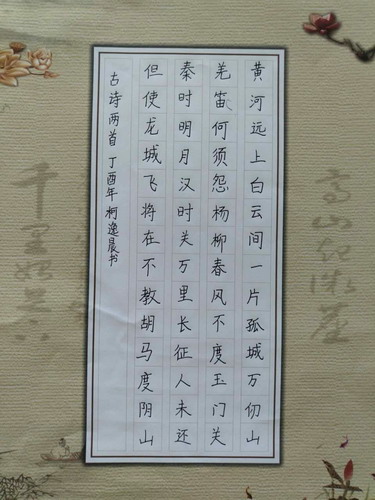 黄河远上白云间一片孤城万仞山
羌笛何须怨杨柳春风不度玉门关
秦时明月汉时关万里长征人未还
但使龙城飞将在不教胡马度阴山
古诗两首 丁酉年 柯逸晨书